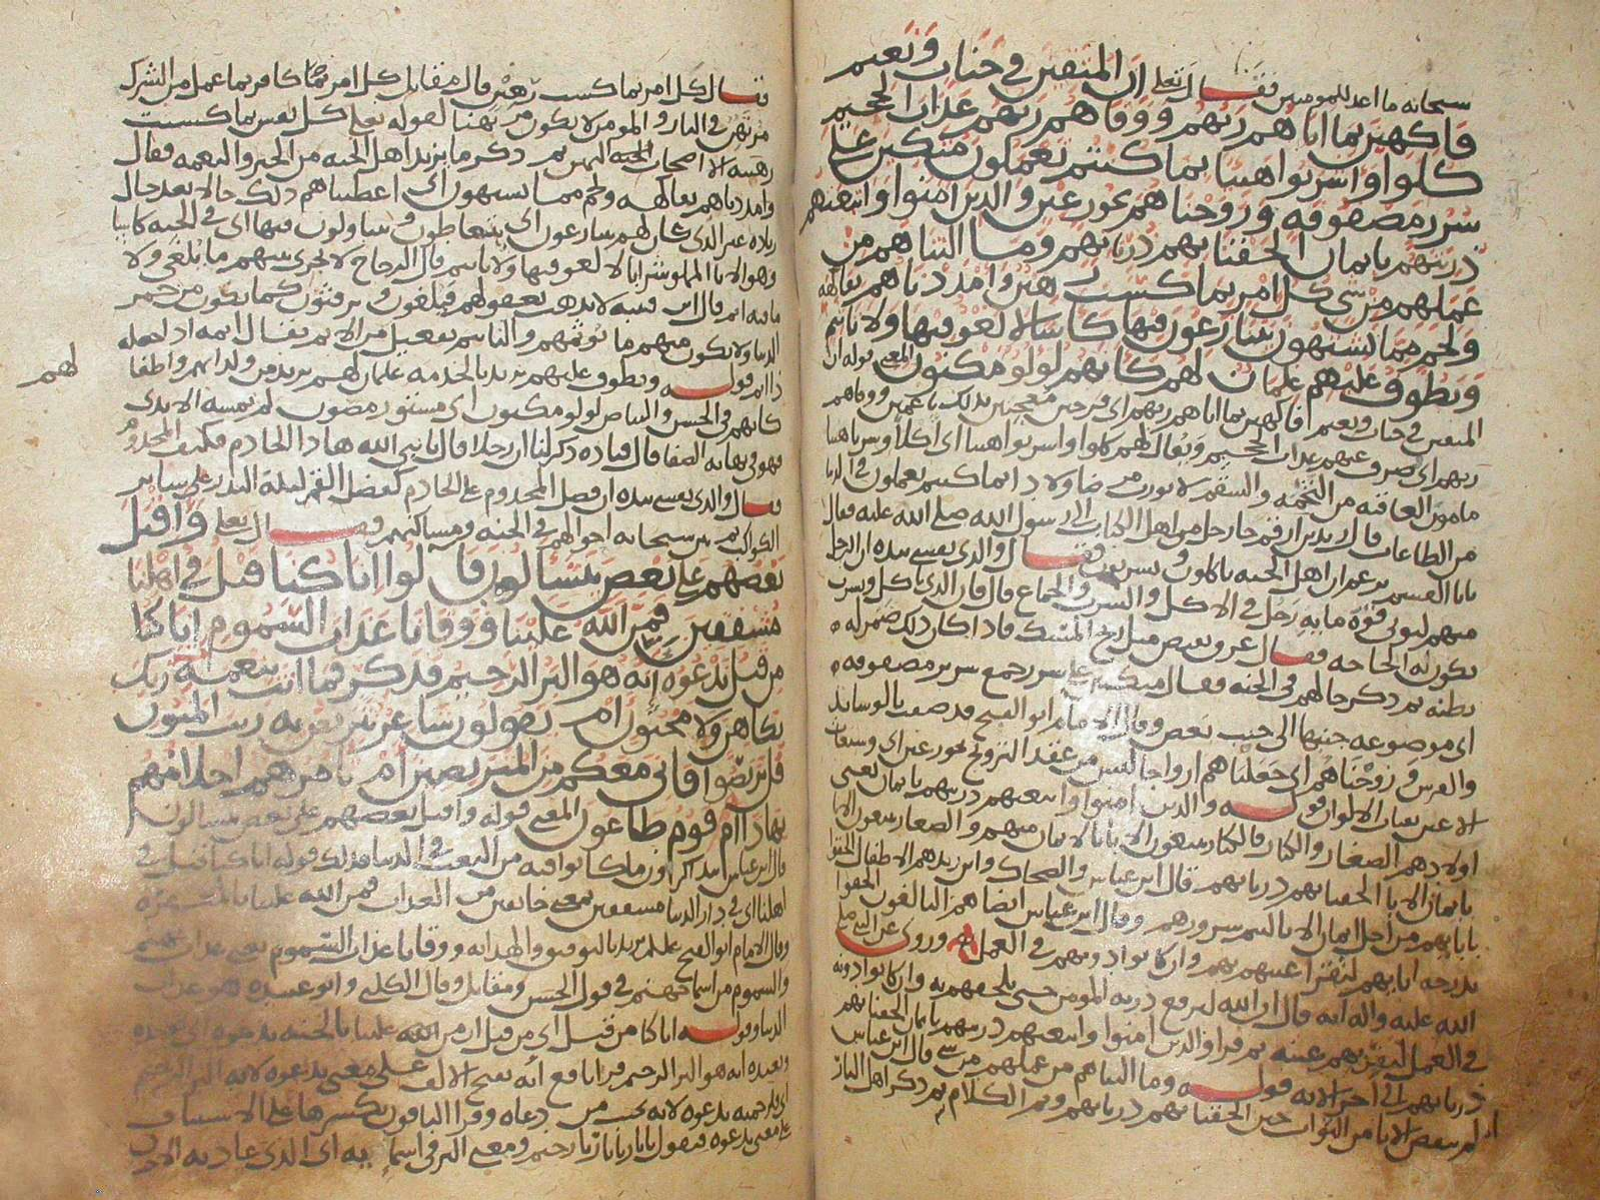 سبحانه ما اعد للمومنين فقال تعلى ان المتقين في جنات ونعيم
فاكهين بما اتاهم ربهم ووقاهم ربهم عذاب الجحيم
كلوا واشربوا هنيا بما كنتم تعملون متكين على
سرر مصفوفه وزوجناهم بحور عين والذين امنوا واتبعتهم
ذريتهم بايمان الحقنا بهم ذرياتهم وما التناهم من
عملهم من شي كل امر بما كسب رهين وامددناهم بفاكهه
ولحم مما يشتهون يتنازعون فيها كاسا لا لغو فيها ولا تاثيم
ويطوف عليهم غلمان لهم كانهم لولو مكنون المعنى قوله ان
المتقين في جنات ونعيم فاكهين بما اتاهم ربهم اي فرحين معجبين بذلك ناعمين ووقاهم
ربهم اي صرف عنهم عذاب الجحيم ويقال لهم كلوا واشربوا هنيا اي اكلا وشربا هنيا
مامون العاقبه من التخمه والسقم بما كنتم تعملون في الدنيا
من الطاعات قال زيد بن ارقم جا رجل من اهل الكتاب الى رسول الله صلى الله عليه فقال
يابا القسم تزعم ان اهل الجنه ياكلون ويشربون فقال والذي نفسي بيده ان الرجل
منهم ليوتى قوة مايه رجل في الاكل والشرب والجماع قال فان الذي ياكل ويشرب
تكون له الحاجه فقال عرق يفيض مثل ريح المسك فاذا كان ذلك ضمر له
بطنه ثم ذكر حالهم في الجنه فقال متكين على سرر جمع سرير مصفوفه
اي موضوعه جنبها الى جنب بعض وقال الامام ابو الفتح قد صفت بالوسايد
والفرش وزوجناهم اي جعلناهم ازواجا ليس من عقد التزويج بحور عين اي
الاعين بيض الالوان قوله والذين امنوا واتبعتهم ذريتهم بايمان يعني
اولادهم الصغار والكبار فالكبار يتبعون الابا بالايمان منهم والصغار يتبعون الابا
بايمان الابا الحقنا بهم ذرياتهم قال ابن عباس والضحاك وابن زيد هم الاطفال الحقوا
بابايهم من اجل ايمان الابا ليتم سرورهم وقال ابن عباس ايضا هم البالغون الحقوا
بدرجه ابايهم لتقر اعينهم بهم وان كانوا دونهم في العمل وروي عن النبي صلى
الله عليه واله انه قال ان الله ليرفع ذريه المومن حتى يلحقهم به وان كانوا دونه
في العمل ليقر بهم عينه ثم قرا والذين امنوا واتبعتهم ذريتهم بايمان الحقنا بهم
ذرياتهم الى اخر الايه قوله وما التناهم من عملهم من شي قال ابن عباس
لم ينقص الابا من الثواب حين الحقنا بهم ذرياتهم وتم الكلام ثم ذكر اهل النار
فقال كل امر بما كسب رهين قال مقاتل كل امر كافر بما عمل من الشرك
مرتهن في النار والمومن لا يكون مرتهنا لقوله تعلى كل نفس بما كسبت
رهينه الا اصحاب اليمين ثم ذكر ما يزيد اهل الجنه من الخير والنعمه فقال
وامددناهم بفاكهه ولحم مما يشتهون اي اعطيناهم ذلك حالا بعد حال
زياده على الذي كان لهم يتنازعون اي يتعاطون ويتناولون فيها اي في الجنه كاسا
وهو الانا المملو شرابا لا لغو فيها ولا تاثيم قال الزجاج لا يجري بينهم ما يلغي ولا
ما فيه اثم قال ابن قتيبه لا يذهب بعقولهم فيلغون ويرفثون كما يكون من خمر
الدنيا ولا يكون منهم ما يوثمهم والتاثيم تفعيل من الاثم يقال اثمه اذا جعله
ذا اثم قوله ويطوف عليهم يريد بالخدمه غلمان لهم
كانهم في الحسن والبياض لولو مكنون اي مستور مصون لم تمسه الايدي
فهو في نهايه الصفا قال قتاده ذكر لنا ان رجلا قال يا نبي الله هاذا الخادم فكيف المخدوم
فقال والذي نفسي بيده ان فضل المخدوم على الخادم كفضل القمر ليلة البدر على ساير
الكواكب ثم بين سبحانه احوالهم في الجنه ومساكنهم فقال تعلى واقبل
بعضهم على بعض يتسالون قالوا انا كنا قبل في اهلنا
مشفقين فمن الله علينا ووقانا عذاب السموم انا كنا
من قبل ندعوه انه هو البر الرحيم فذكر فما انت بنعمة ربك
بكاهن ولا مجنون ام يقولون شاعر نتربص به ريب المنون
قل تربصوا فاني معكم من المتربصين ام تامرهم احلامهم
بهاذا ام هم قوم طاغون المعنى قوله واقبل بعضهم على بعض يتسالون
قال ابن عباس يتذاكرون ما كانوا فيه من التعب في الدنيا وذلك قوله انا كنا قبل في
اهلنا اي في دار الدنيا مشفقين يعني خايفين من العذاب فمن الله علينا بالمغفره
وقال الامام ابو الفتح يريد بالتوفيق والهدايه ووقانا عذاب السموم يعني عذاب جهنم
والسموم من اسما جهنم في قول الحسن ومقاتل وقال الكلبي وابو عبيده هو عذاب
النار وقوله انا كنا من قبل اي من قبل ان من الله علينا بالجنه ندعوه اي نوحده
ونعبده انه هو البر الرحيم قرا نافع انه بفتح الالف على معنى ندعوه لانه البر الرحيم
اي فلرحمته ندعوه لانه يجيب من دعاه وقرا الباقون بكسرها على الاستيناف
على معنى ندعوه فنقول يا بار يا رحيم ومعنى البر في اسمايه اي الذي عادته الاحسان
لهم